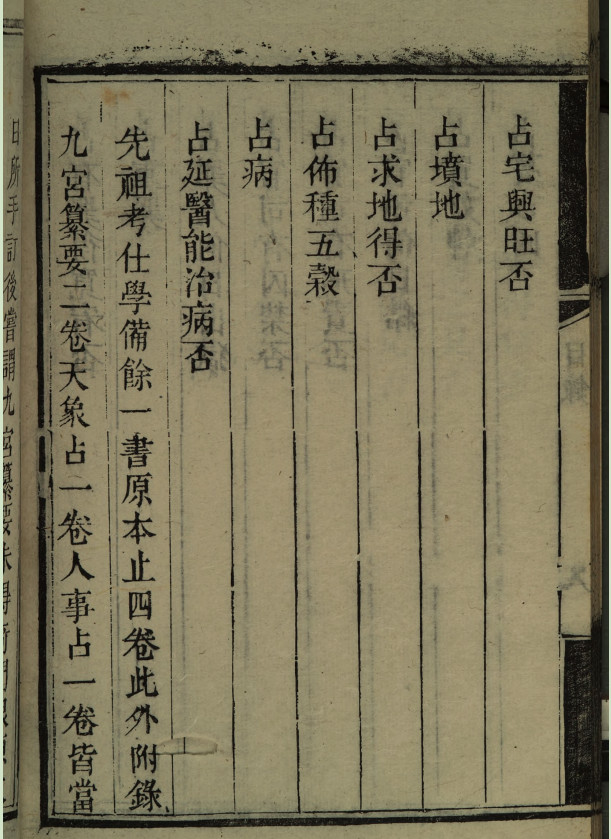 占宅興旺否
占墳地
占求地得否
占佈種五穀
占病
占延醫能治病否
先祖考仕學備餘一書原本止四卷此外附錄
九宮纂要二卷天象占一卷人事占一卷皆當
日所手訂後嘗謂九宮纂要未得
目錄